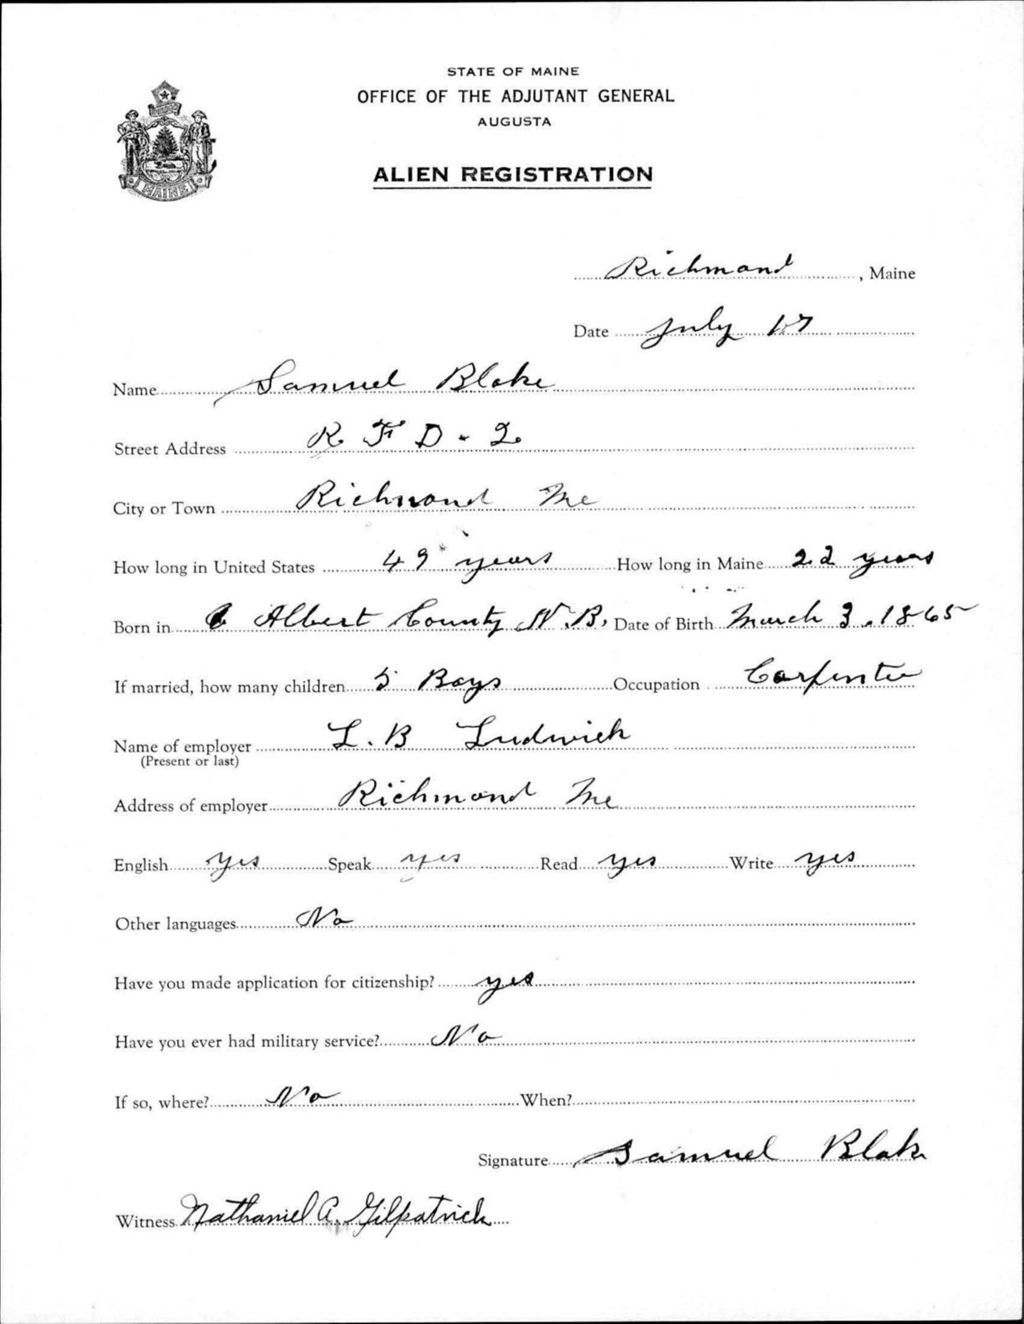 STATE OF MAINE
OFFICE OF THE ADJUTANT GENERAL
AUGUSTA
ALIEN REGISTRATION
MAINE
Richmond, Maine
Date July 17
Name Samuel Blake
Street Address R. F D - 2.
City or Town Richmond Me
How long in United States 49 years How long in Maine 22 years
Born in Albert County N.B. Date of Birth March 3. 1865
If married, how many children 5 Boys Occupation Carpenter
Name of employer L. B Ludwich
(Present or last)
Address of employer Richmond Me
English yes Speak yes Read yes Write yes
Other languages No
Have you made application for citizenship? yes
Have you ever had military service? No
If so, where? No When?
Signature Samuel Blake
Witness Nathaniel A. Gilpatrick